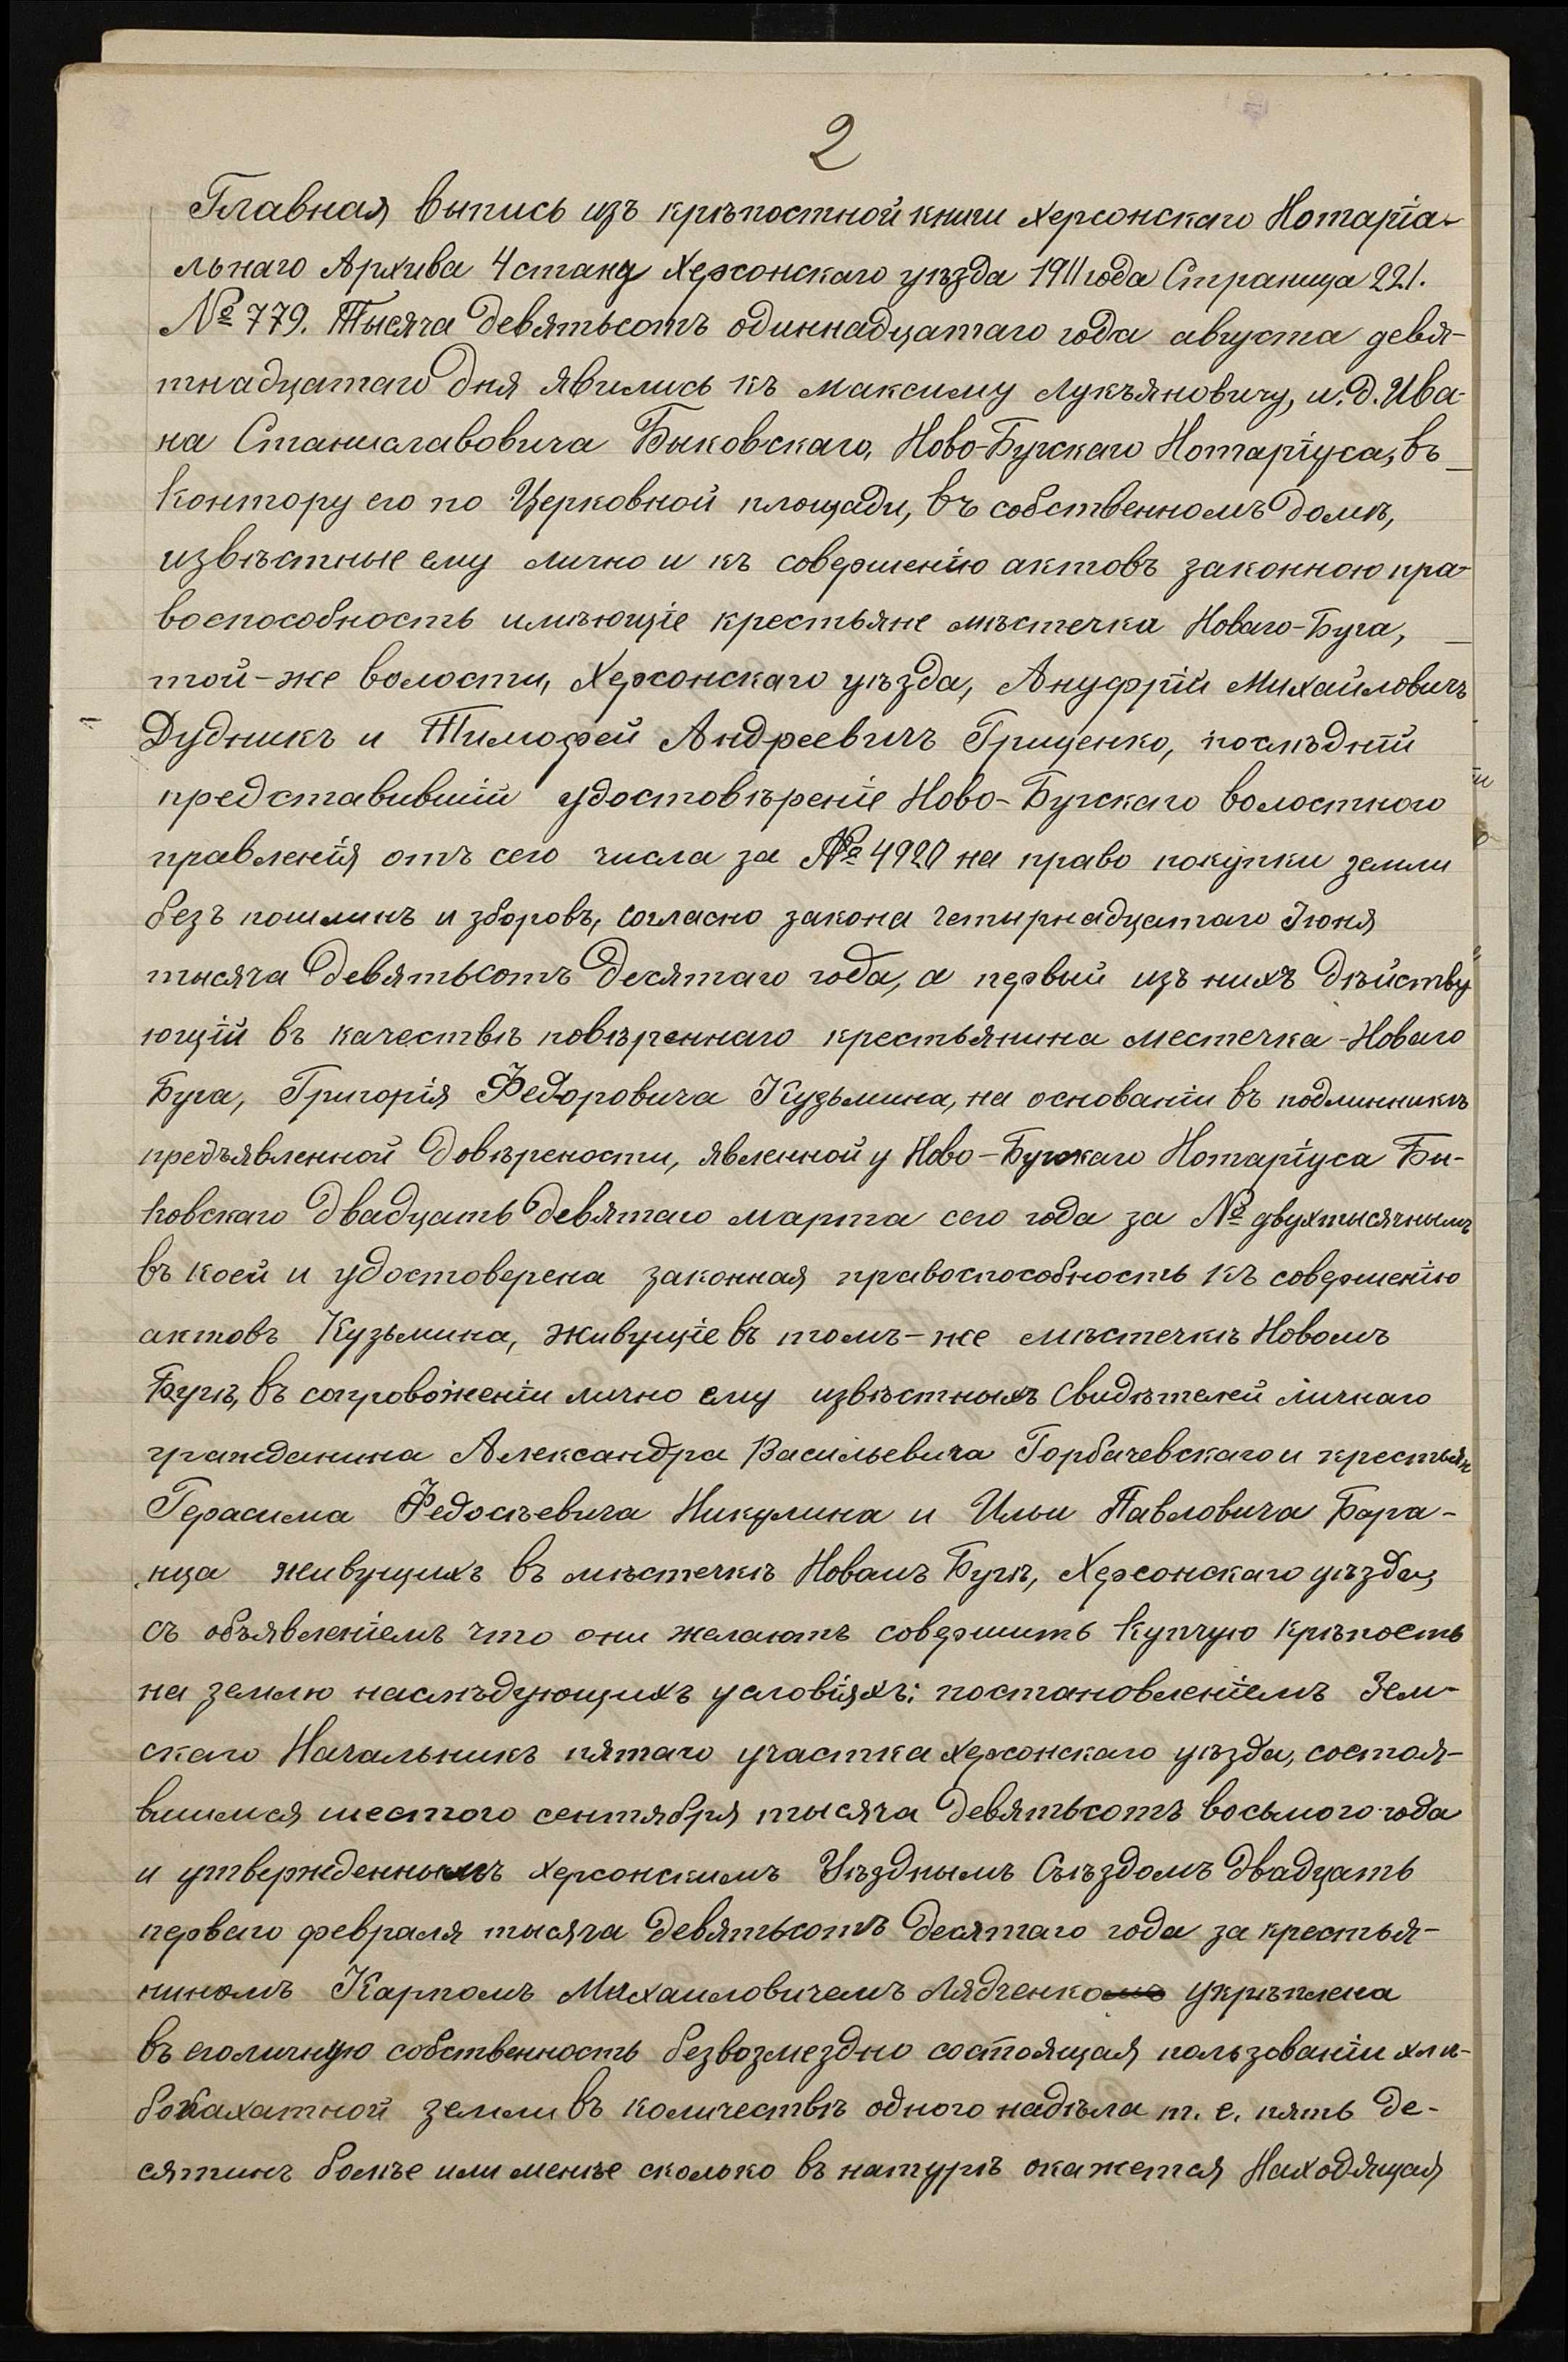 2
Главная выпись изъ крѣпостной книги Херсонскаго Нотаріа-
льнаго Архива 4 стана Херсонскаго уѣзда 1911 года Страница 221.
№ 779. Тысяча девятьсотъ одиннадцатаго года августа девя-
тнадцатаго дня явились къ Максиму Лукъяновичу, и. д. Ива-
на Станиславовича Быковскаго, Ново-Бугскаго Нотаріуса, въ
контору его по Церковной площади, въ собственномъ домѣ,
извѣстные ему лично и къ совершенію актовъ законною пра-
воспособность имѣющіе крестьяне мѣстечка Новаго-Буга,
той-же волости, Херсонскаго уѣзда, Ануфрій Михайловичъ
Дудникъ и Тимофей Андреевичъ Гриценко, послѣдній
представившій удостовѣреніе Ново-Бугскаго волостного
правленія отъ сего числа за № 4920 на право покупки земли
безъ пошлинъ и зборовъ, согласно закона четырнадцатаго Іюня
тысяча девятьсотъ десятаго года, а первый изъ нихъ дѣйству
ющій въ качествѣ повѣреннаго крестьянина местечка Новаго
Буга, Григорія Федоровича Кузьмина, на основаніи въ подлинникѣ
предъявленной довѣрености, явленной у Ново-Бугскаго Нотаріуса Бы-
ковскаго двадцать девятаго марта сего года за № двухтысячнымъ
въ коей и удостоверена законная правоспособность къ совершенію
актовъ Кузьмина, живущіе въ томъ-же мѣстечкѣ Новомъ
Бугѣ, въ сопровоженіи лично ему извѣстныхъ свидѣтелей личнаго
гражданина Александра Васильевича Горбачевскаго и крестьян
Герасима Федосѣевича Никулина и Ильи Павловича Бара-
нца живущихъ въ мѣстечкѣ Новомъ Бугѣ, Херсонскаго уѣзда,
съ объявленіемъ что они желаютъ совершить купчую крѣпость
на землю наслѣдующихъ условіяхъ: постановленіемъ Зем-
скаго Начальникъ пятаго участка Херсонскаго уѣзда, состоя-
вшимся шестого сентября тысяча девятьсотъ восьмого года
и утвержденнымъ Херсонскимъ Уѣзднымъ Съѣздомъ двадцать
перваго февраля тысяча девятьсотъ десятаго года за крестья-
ниномъ Карпомъ Михаиловичемъ Лядченкомъ укрѣплена
въ еголичную собственность безвозмездно состоящая пользованіи хлѣ-
бопахатной земли въ количествѣ одного надѣла т. е. пять де-
сятинъ болѣе или менѣе сколько въ натурѣ окажется Находящая